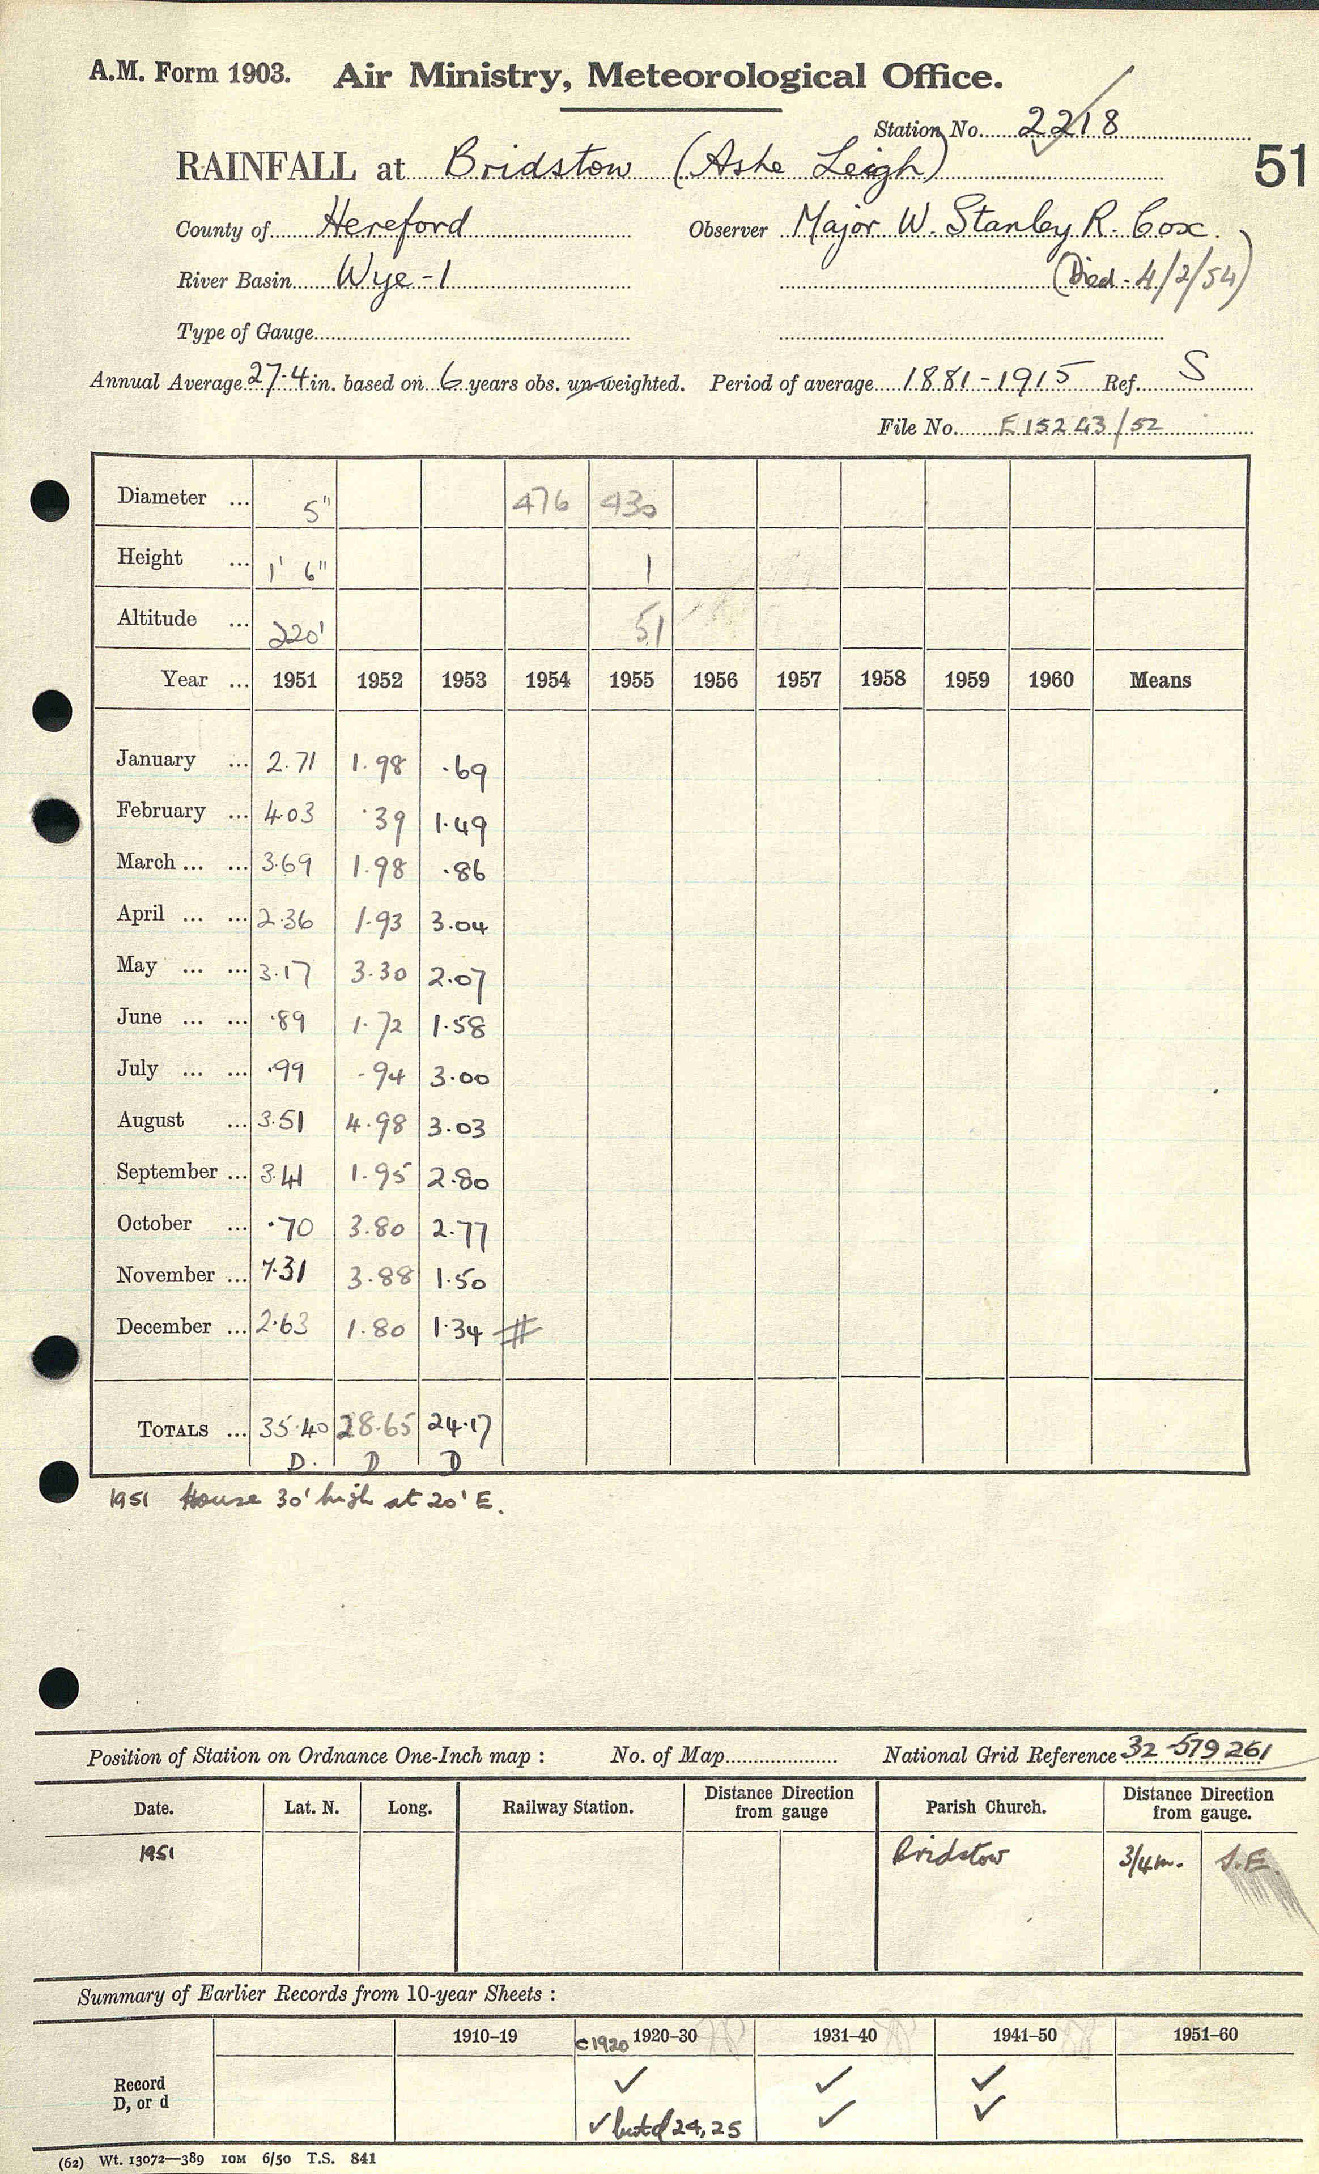 A.M. Form 1903. Air Ministry, Meteorological Office.
Station No. 2218
RAINFALL at Bridstow (Ashe Leigh)
51
County of Hereford Observer Major W. Stanley R. Cox.
River Basin Wye-1 (Died - 4/2/54)
Type of Gauge
Annual Average 27.4 in. based on 6 years obs. un-weighted. Period of average 1881-1915 Ref. S
File No. E15243/52
Diameter ... 5" 476 430
Height ... 1' 6" 1
Altitude ... 220' 51
Year ... 1951 1952 1953 1954 1955 1956 1957 1958 1959 1960 Means
January ... 2.71 1.98 .69
February ... 4.03 .39 1.49
March ... ... 3.69 1.98 .86
April ... ... 2.36 1.93 3.04
May ... ... 3.17 3.30 2.07
June ... ... .89 1.72 1.58
July ... ... .99 .94 3.00
August ... 3.51 4.98 3.03
September ... 3.41 1.95 2.80
October ... .70 3.80 2.77
November ... 7.31 3.88 1.50
December ... 2.63 1.80 1.34 #
TOTALS ... 35.40 28.65 24.17
D. D D
1951 House 30' high at 20' E.
Position of Station on Ordnance One-Inch map : No. of Map National Grid Reference 32-579261
Date. Lat. N. Long. Railway Station. Distance from gauge Direction Parish Church. Distance from gauge. Direction
1951 Bridstow 3/4m. S.E.
Summary of Earlier Records from 10-year Sheets :
1910-19 c1920 1920-30 1931-40 1941-50 1951-60
Record ✓ ✓ ✓
D, or d ✓ but d 24, 25 ✓ ✓
(62) Wt. 13072—389 10M 6/50 T.S. 841